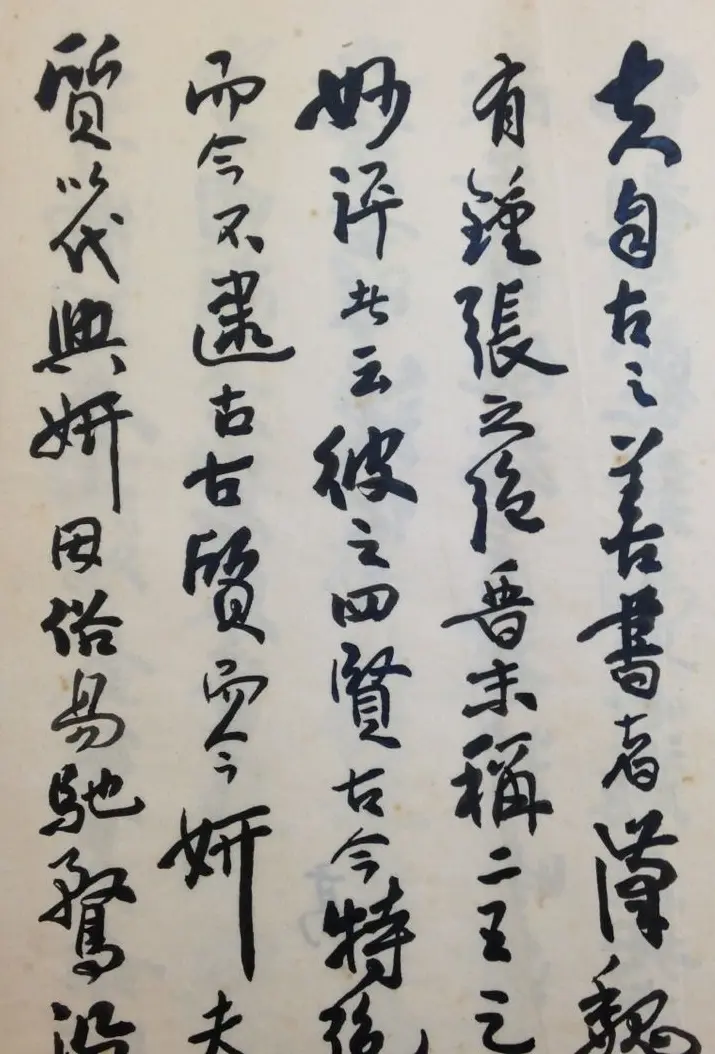 夫自古之善書者漢魏
有鍾張之絕晉末稱二王之
妙評者云彼之四賢古今特絕
而今不逮古古質而今妍夫
質以代興妍因俗易馳騖沿